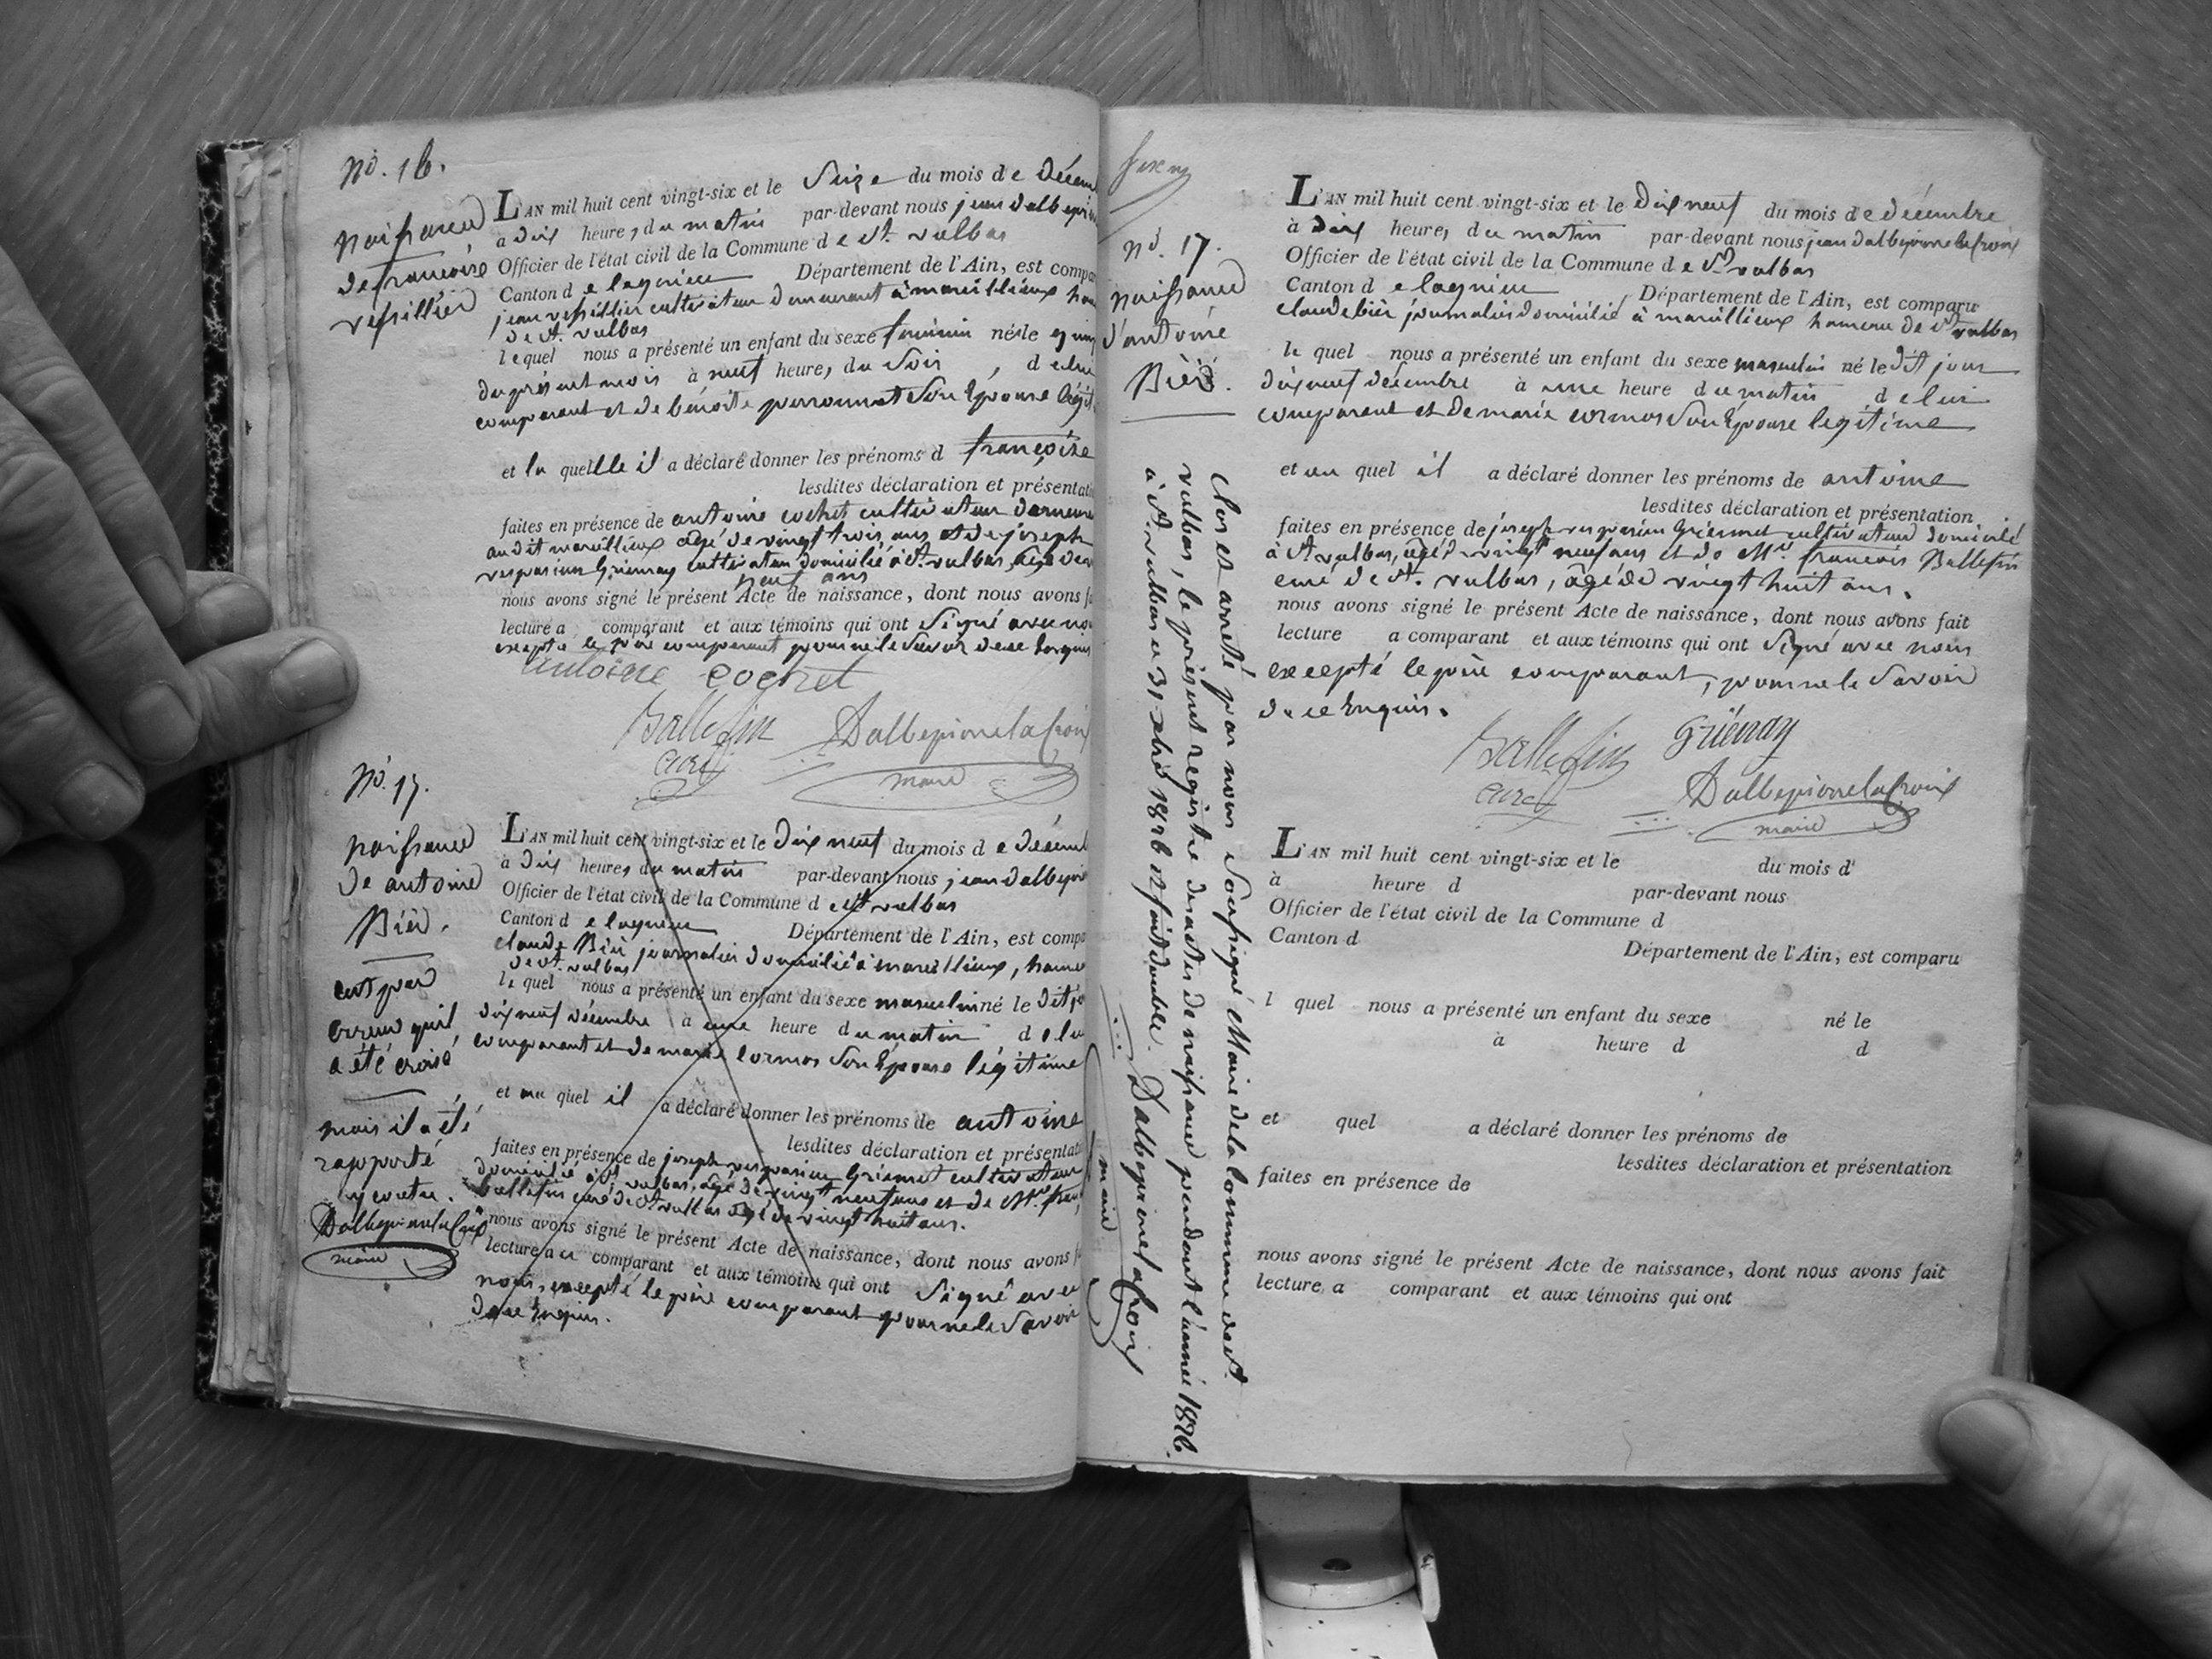 No. 16.
naissance
de francoise
versillier
L'AN mil huit cent vingt-six et le Seize du mois de Décem
à dix heures du matin par-devant nous jean dalbepier
Officier de l'état civil de la Commune de St. vulbas
Canton de lagnieu Département de l'Ain, est compa
jean versillier cultivateur demeurant à marcillieux ham
de St. vulbas
lequel nous a présenté un enfant du sexe feminin née le quin
du présent mois à neuf heures du Soir, de lui
comparant et de benoite perronnet Son Epouse légit
et la quellle il a déclaré donner les prénoms d françoise
lesdites déclaration et présentati
faites en présence de antoine cochet cultivateur demeura
audit marcillieux agé de vingt trois ans et de joseph
vespasien Griennay cultivateur domicilié à St. vulbas, agé de
neuf ans
nous avons signé le présent Acte de naissance, dont nous avons f
lecture a comparant et aux témoins qui ont Signé avec no
excepté le père comparant pour ne le Savoir de ce Enquis
antoine cochet
Ballefin curé
Dalbepierrelacroix
maire
No. 17.
naissance
de antoine
Bièr.
c'est par
erreur qu'il
a été croisé
mais il a été
rapporté
cy contre.
Dalbepierrelacroix
maire
L'AN mil huit cent vingt-six et le Dix neuf du mois de décemb
à dix heures du matin par-devant nous jean dalbepier
Officier de l'état civil de la Commune de St vulbas
Canton de lagnieu Département de l'Ain, est compa
claude Bièr journalier domicilié à marcillieux, hame
de St. vulbas
lequel nous a présenté un enfant du sexe masculin né le dit jo
dix neuf décembre à une heure du matin de lu
comparant et de marie cormos Son Epouse légitime
et au quel il a déclaré donner les prénoms de antoine
lesdites déclaration et présentati
faites en présence de joseph vespasien Griennet cultivateur
domicilié à St. vulbas, agé de vingt neuf ans et de Mre. fran
Ballefin curé de St. vulbas agé de vingt huit ans.
nous avons signé le présent Acte de naissance, dont nous avons f
lecture au comparant et aux témoins qui ont Signé avec
nous, excepté le père comparant pour ne le Savoir
de ce Enquis.
No. 17.
naissance
d'antoine
Bièr.
L'AN mil huit cent vingt-six et le Dix neuf du mois de décembre
à dix heures du matin par-devant nous jean dalbepierrelacroix
Officier de l'état civil de la Commune de St vulbas
Canton de lagnieu Département de l'Ain, est comparu
claude bièr journalier domicilié à marcillieux hameau de St vulbas
le quel nous a présenté un enfant du sexe masculin né le dit jour
dix neuf décembre à une heure du matin de lui
comparant et de marie cormos Son Epouse legitime
et au quel il a déclaré donner les prénoms de antoine
lesdites déclaration et présentation
faites en présence de joseph vespasien Griennet cultivateur domicilié
à St vulbas, âgé de vingt neuf ans et de Mre. francois Ballefin
curé de St. vulbas, âgé de vingt huit ans.
nous avons signé le présent Acte de naissance, dont nous avons fait
lecture a comparant et aux témoins qui ont Signé avec nous
excepté le père comparant, pour ne le Savoir
de ce Enquis.
Ballefin curé
Griënay
Dalbepierrelacroix
maire
Clos et arretté par nous Soussigné Maire de la Commune de St.
vulbas, le présent registre des actes de naissance pendant l'année 1826.
à St. vulbas ce 31 xbre 1826 et fait double. Dalbepierrelacroix
maire
L'AN mil huit cent vingt-six et le du mois d
à heure d par-devant nous
Officier de l'état civil de la Commune d
Canton d Département de l'Ain, est comparu
l quel nous a présenté un enfant du sexe né le
à heure d d
et quel a déclaré donner les prénoms de
lesdites déclaration et présentation
faites en présence de
nous avons signé le présent Acte de naissance, dont nous avons fait
lecture a comparant et aux témoins qui ont